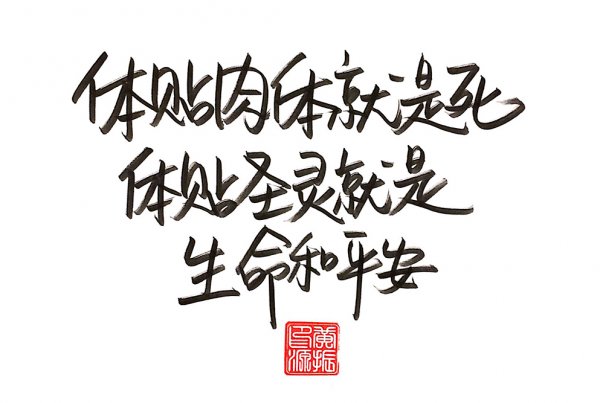 体贴肉体就是死
体贴圣灵就是
生命和平安
黄振
源印